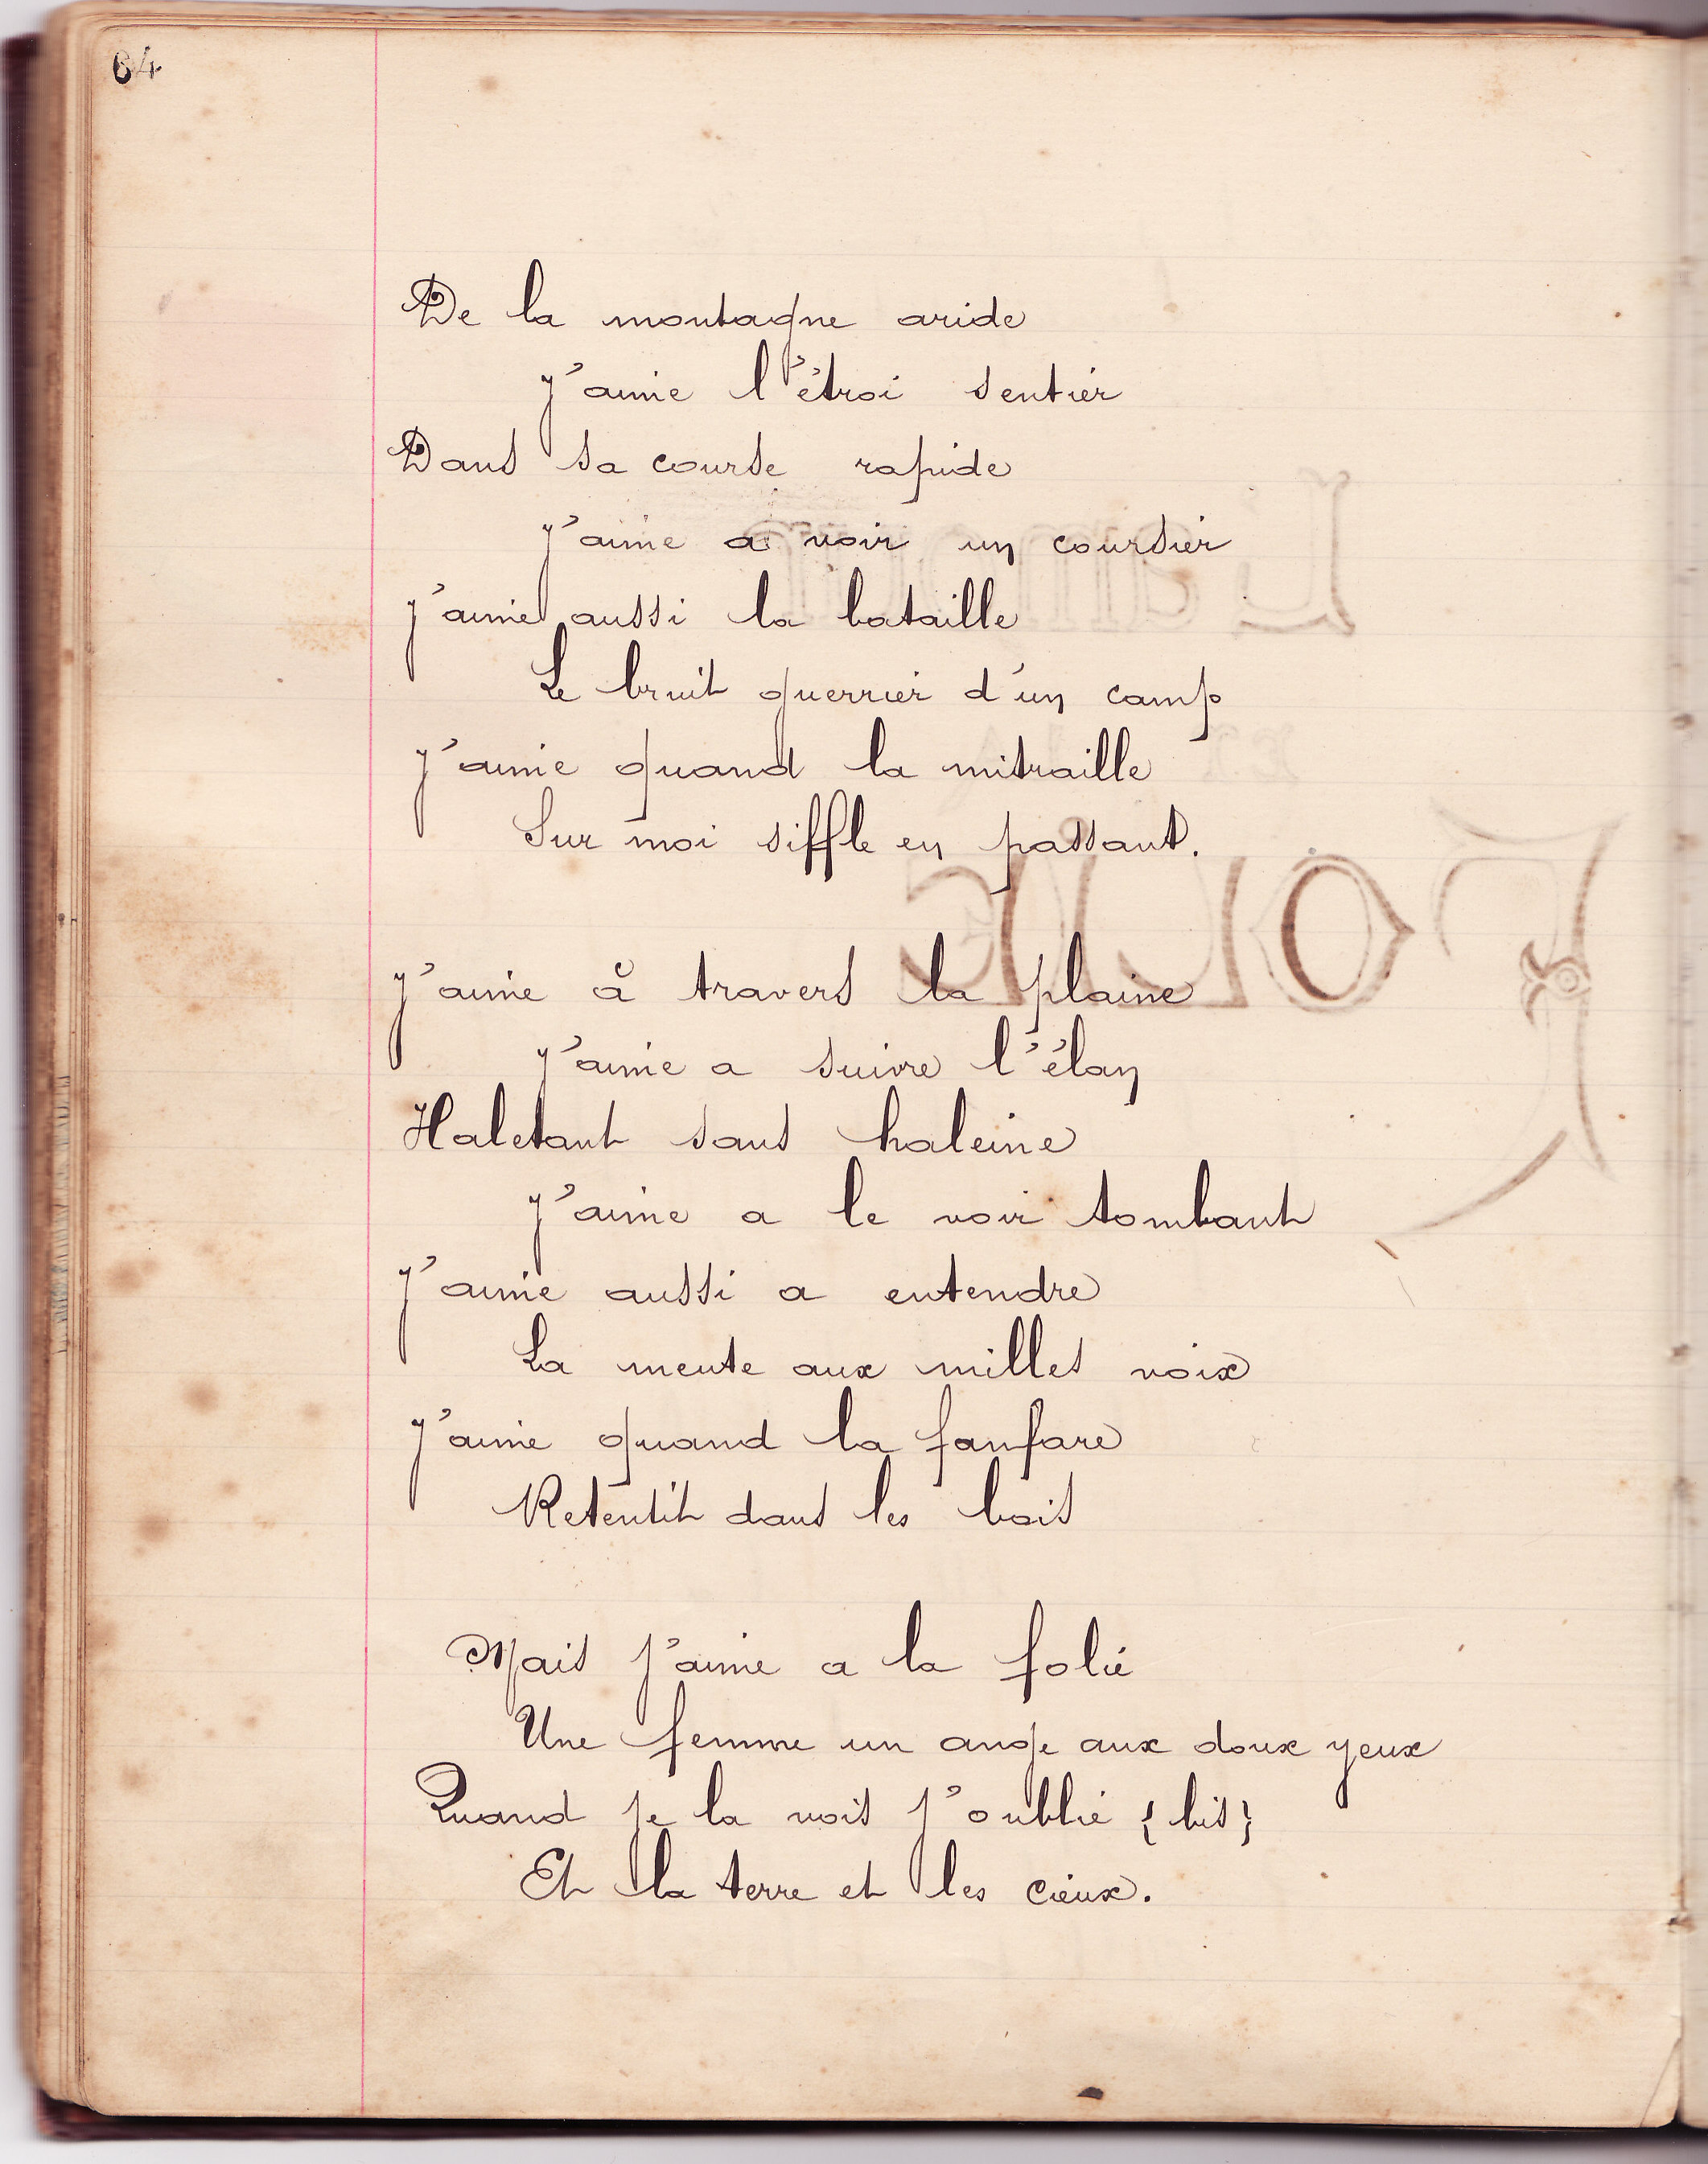 64
De la montagne aride
j'aime l'étroi sentier
Dans sa course rapide
j'aime a voir un coursier
j'aime aussi la bataille
Le bruit guerrier d'un camp
j'aime quand la mitraille
Sur moi siffle en passant.
j'aime à travers la plaine
j'aime a suivre l'élan
Haletant sans haleine
j'aime a le voir tombant
j'aime aussi a entendre
La meute aux milles voix
j'aime quand la fanfare
Retentit dans les bois
Mais j'aime a la folie
Une femme un ange aux doux yeux
Quand je la vois j'oublie {bis}
Et la terre et les cieux.